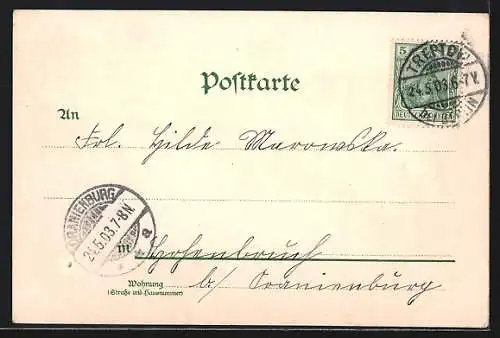 Postkarte
5
TREPTOW
24.5.03.6-7V.
An
Frl. Hilde Marowska.
ORANIENBURG
24.5.03.7-8N.
a
in Hohenbruch
b/ Oranienburg
Wohnung
(Straße und Hausnummer)